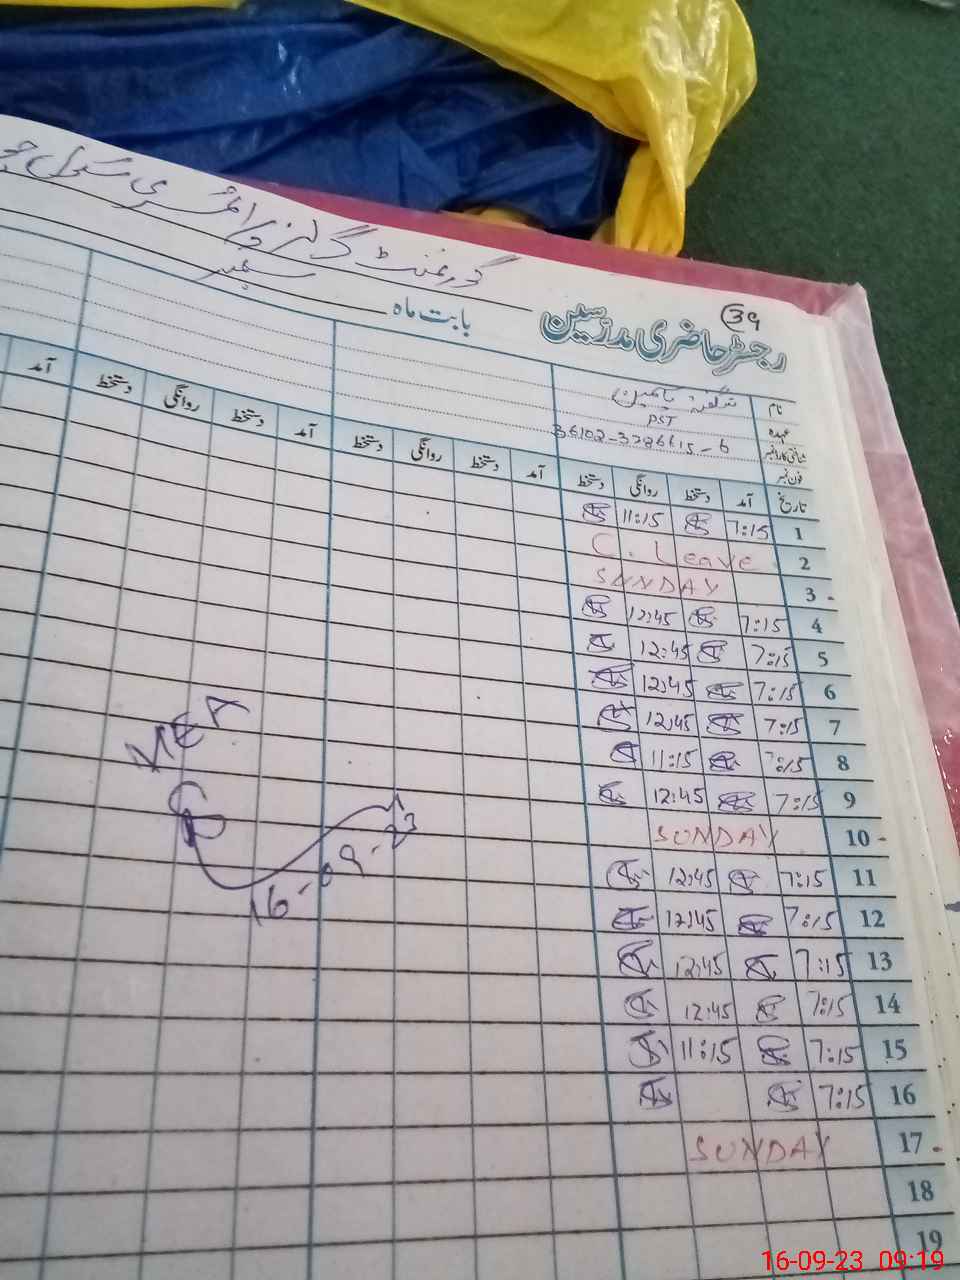 گورنمنٹ گرلز پرائمری سکول
ستمبر
39
رجسٹر حاضری مدرسین بابت ماہ
نام شگفتہ یاسمین
عہدہ PST
شناختی کارڈ نمبر 36102-3286615-6
فون نمبر
تاریخ آمد دستخط روانگی دستخط آمد دستخط روانگی دستخط آمد دستخط روانگی دستخط آمد
1 7:15 11:15
2 C. Leave
3 - SUNDAY
4 7:15 12:45
5 7:15 12:45
6 7:15 12:45
7 7:15 12:45
8 7:15 11:15
9 7:15 12:45
10 - SUNDAY
11 7:15 12:45
12 7:15 12:45
13 7:15 12:45
14 7:15 12:45
15 7:15 11:15
16 7:15
17 - SUNDAY
18
19
MEA
16-09-23
16-09-23 09:19